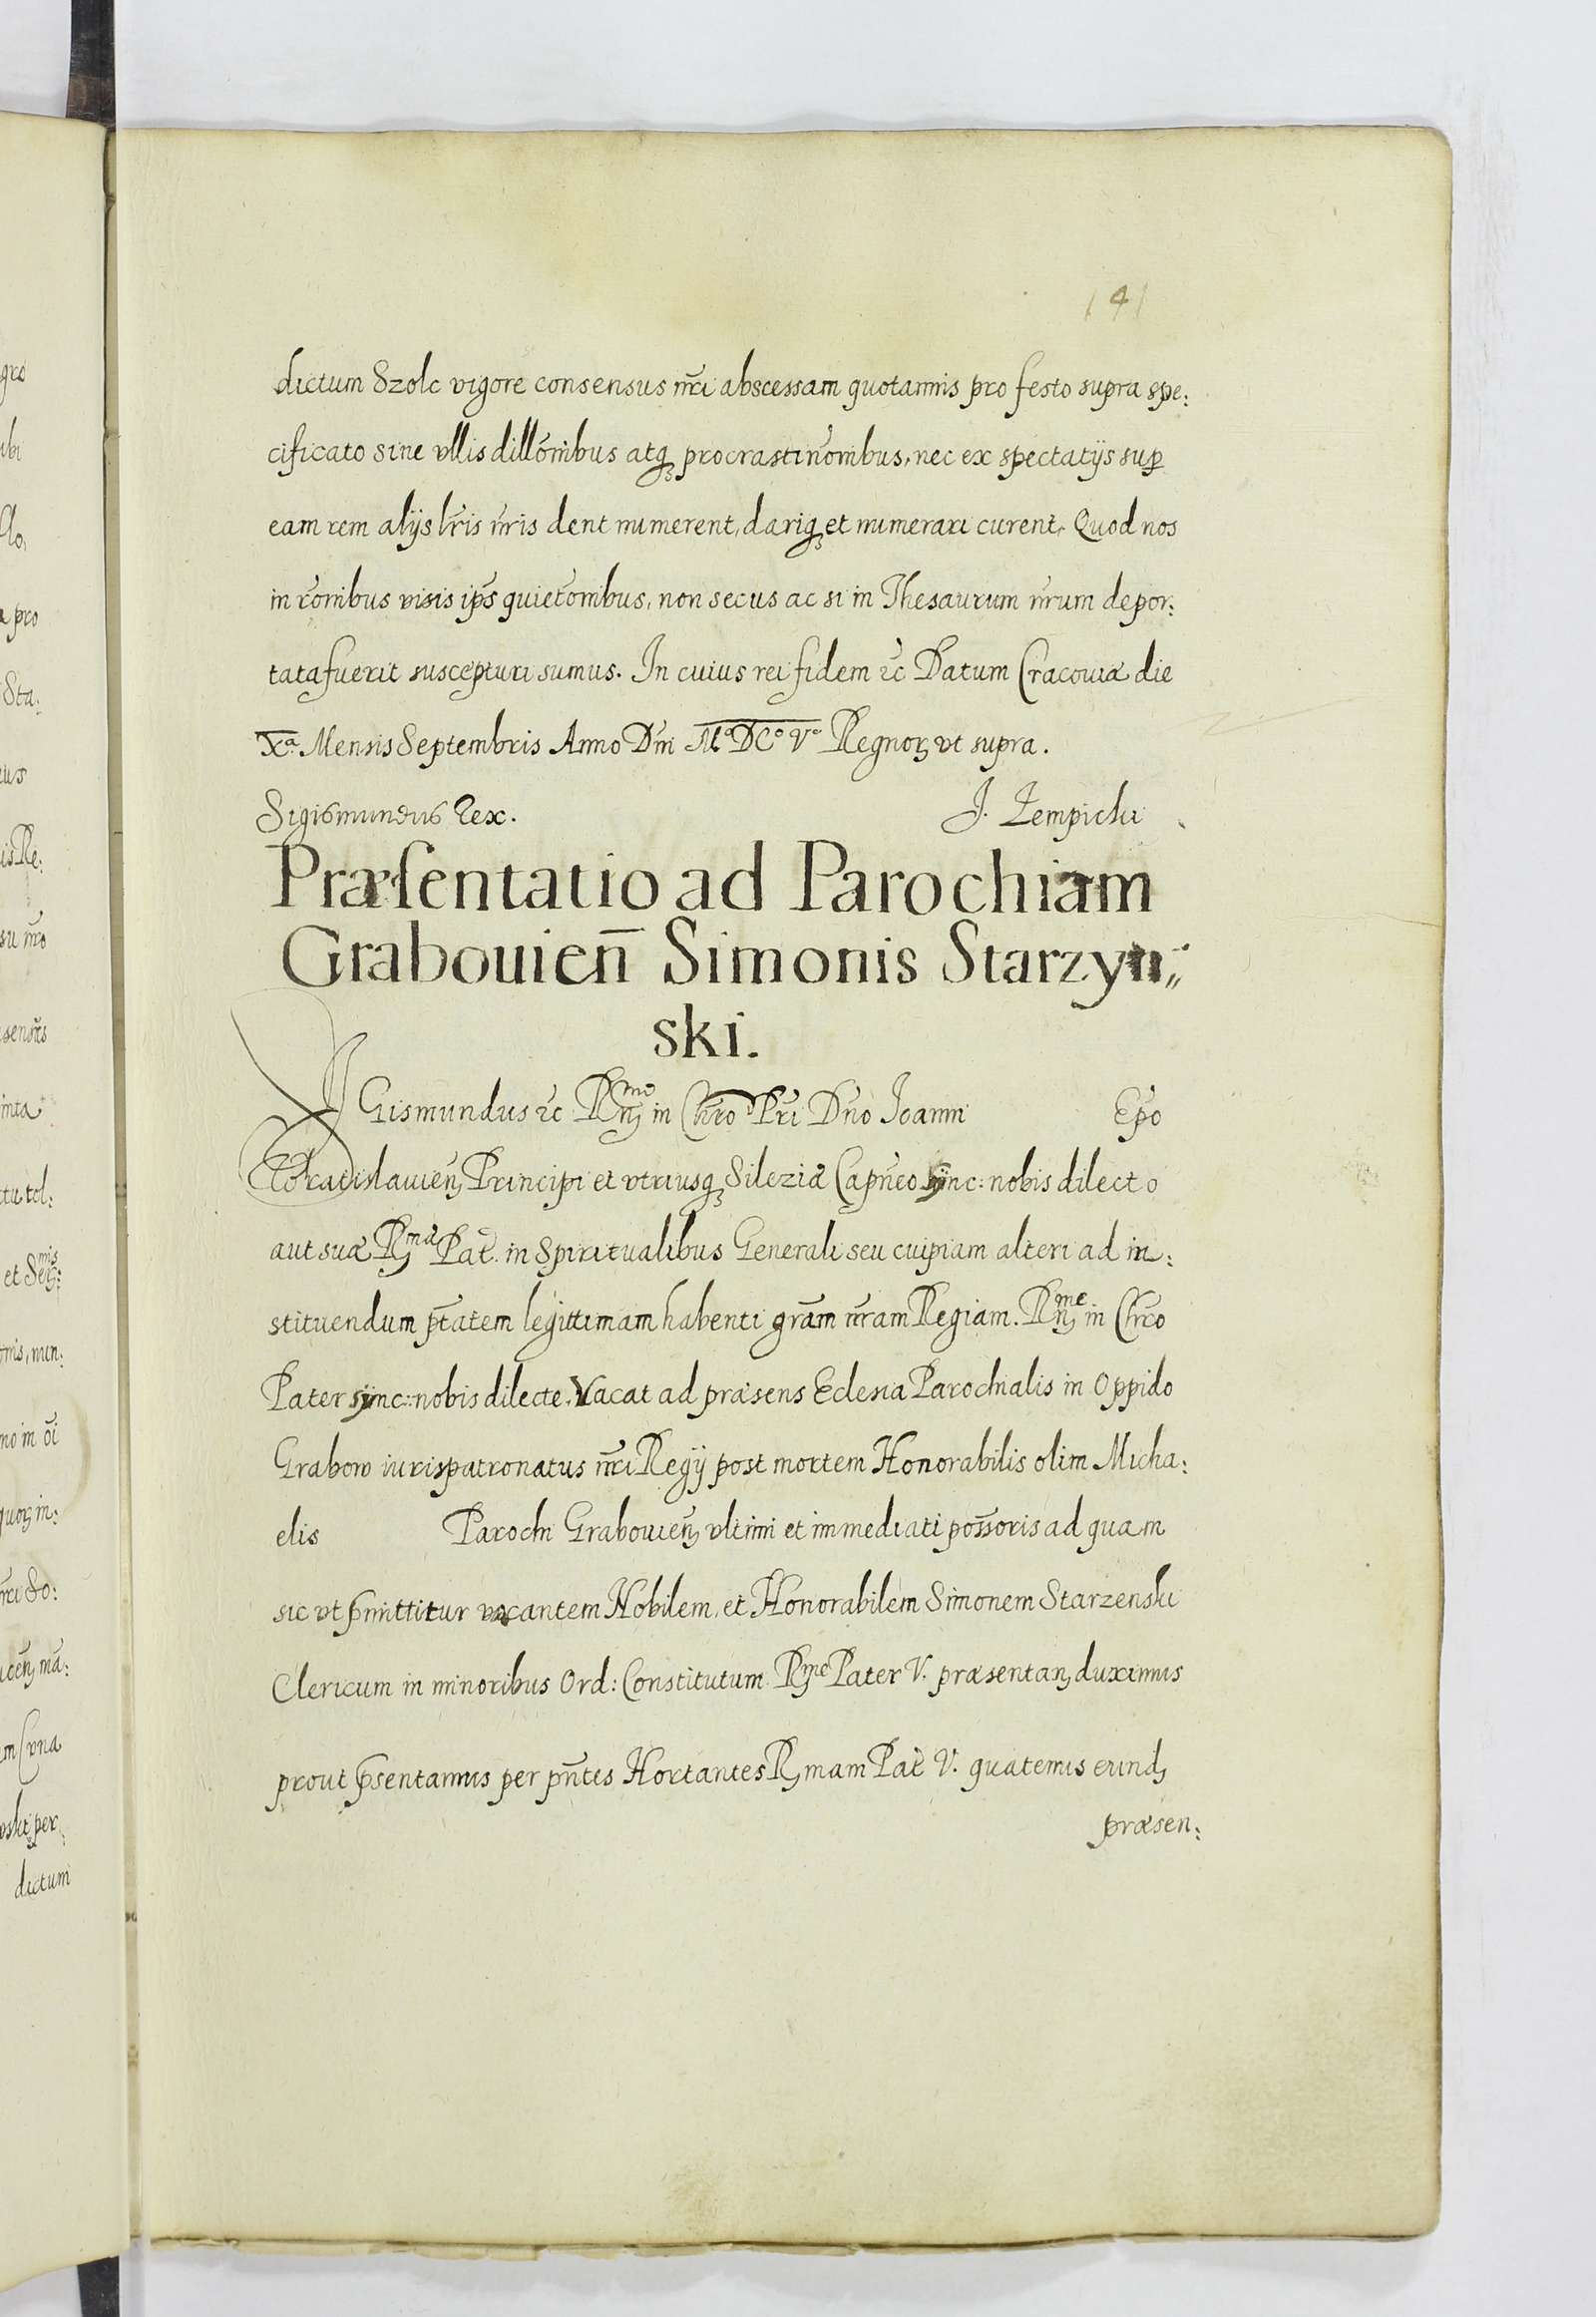 141
dictum Szolc vigore consensus nr̃i abscessam quotannis pro festo supra spe:
cificato sine vllis dillõnibus atq̃ procrastinõnibus, nec ex spectatijs sup̱
eam rem alijs lr̃is nr̃is dent numerent, dariq̃ et numerari curent, Quod nos
in rõnibus visis ip̃s quietõnibus, non secus ac si in Thesaurum nr̃um depor:
tata fuerit suscepturi sumus. In cuius rei fidem ꝛc̃ Datum Cracouiæ die
Xª. Mensis Septembris Anno Dñi Mº DCº Vº Regnoꝝ vt supra.
Sigismundus Rex. J. Zempicki
Præsentatio ad Parochiam
Grabouien̄ Simonis Starzyn„
ski.
SIGismundus ꝛc̃ Rṇ̃me in Chr̃o Pr̃i Dño Ioanni Ep̃o
Wratislauien̨ Principi et vtriusq̃ Sileziæ Capñeo sync: nobis dilecto
aut suæ R̃mæ Pat̃. in Spiritualibus Generali seu cuipiam alteri ad in:
stituendum p̃tatem legittimam habenti grãm nr̃am Regiam. Rṇme in Chr̃o
Pater sync: nobis dilecte. Vacat ad præsens Eclesia Parochialis in Oppido
Grabow iurispatronatus nr̃i Regij post mortem Honorabilis olim Micha:
elis Parochi Grabouien̨ vltimi et immediati poss̃oris ad quam
sic vt p̃mittitur vacantem Nobilem, et Honorabilem Simonem Starzenski
Clericum in minoribus Ord: Constitutum R̃me Pater V. præsentan̨ duximus
prout p̃sentamus per pñtes Hortantes R̨mam Pat̃ V. quatenus eund̨
præsen: